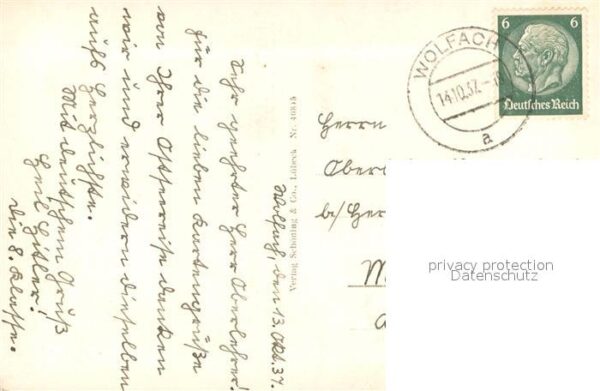 Wolfach, den 13. Okt. 37.
Sehr geehrter Herr Oberlehrer!
Für die lieben Kartengrüße
von Ihrer Ostseereise danken
wir und erwidern dieselben
aufs herzlichste.
Mit deutschem Gruß
Heil Hitler!
die 8. Klasse.
Verlag Schöning & Co., Lübeck Nr. 40845
WOLFACH
14.10.37.
a
6 6
Deutsches Reich
Herrn
Ober
b/ Her
privacy protection
Datenschutz